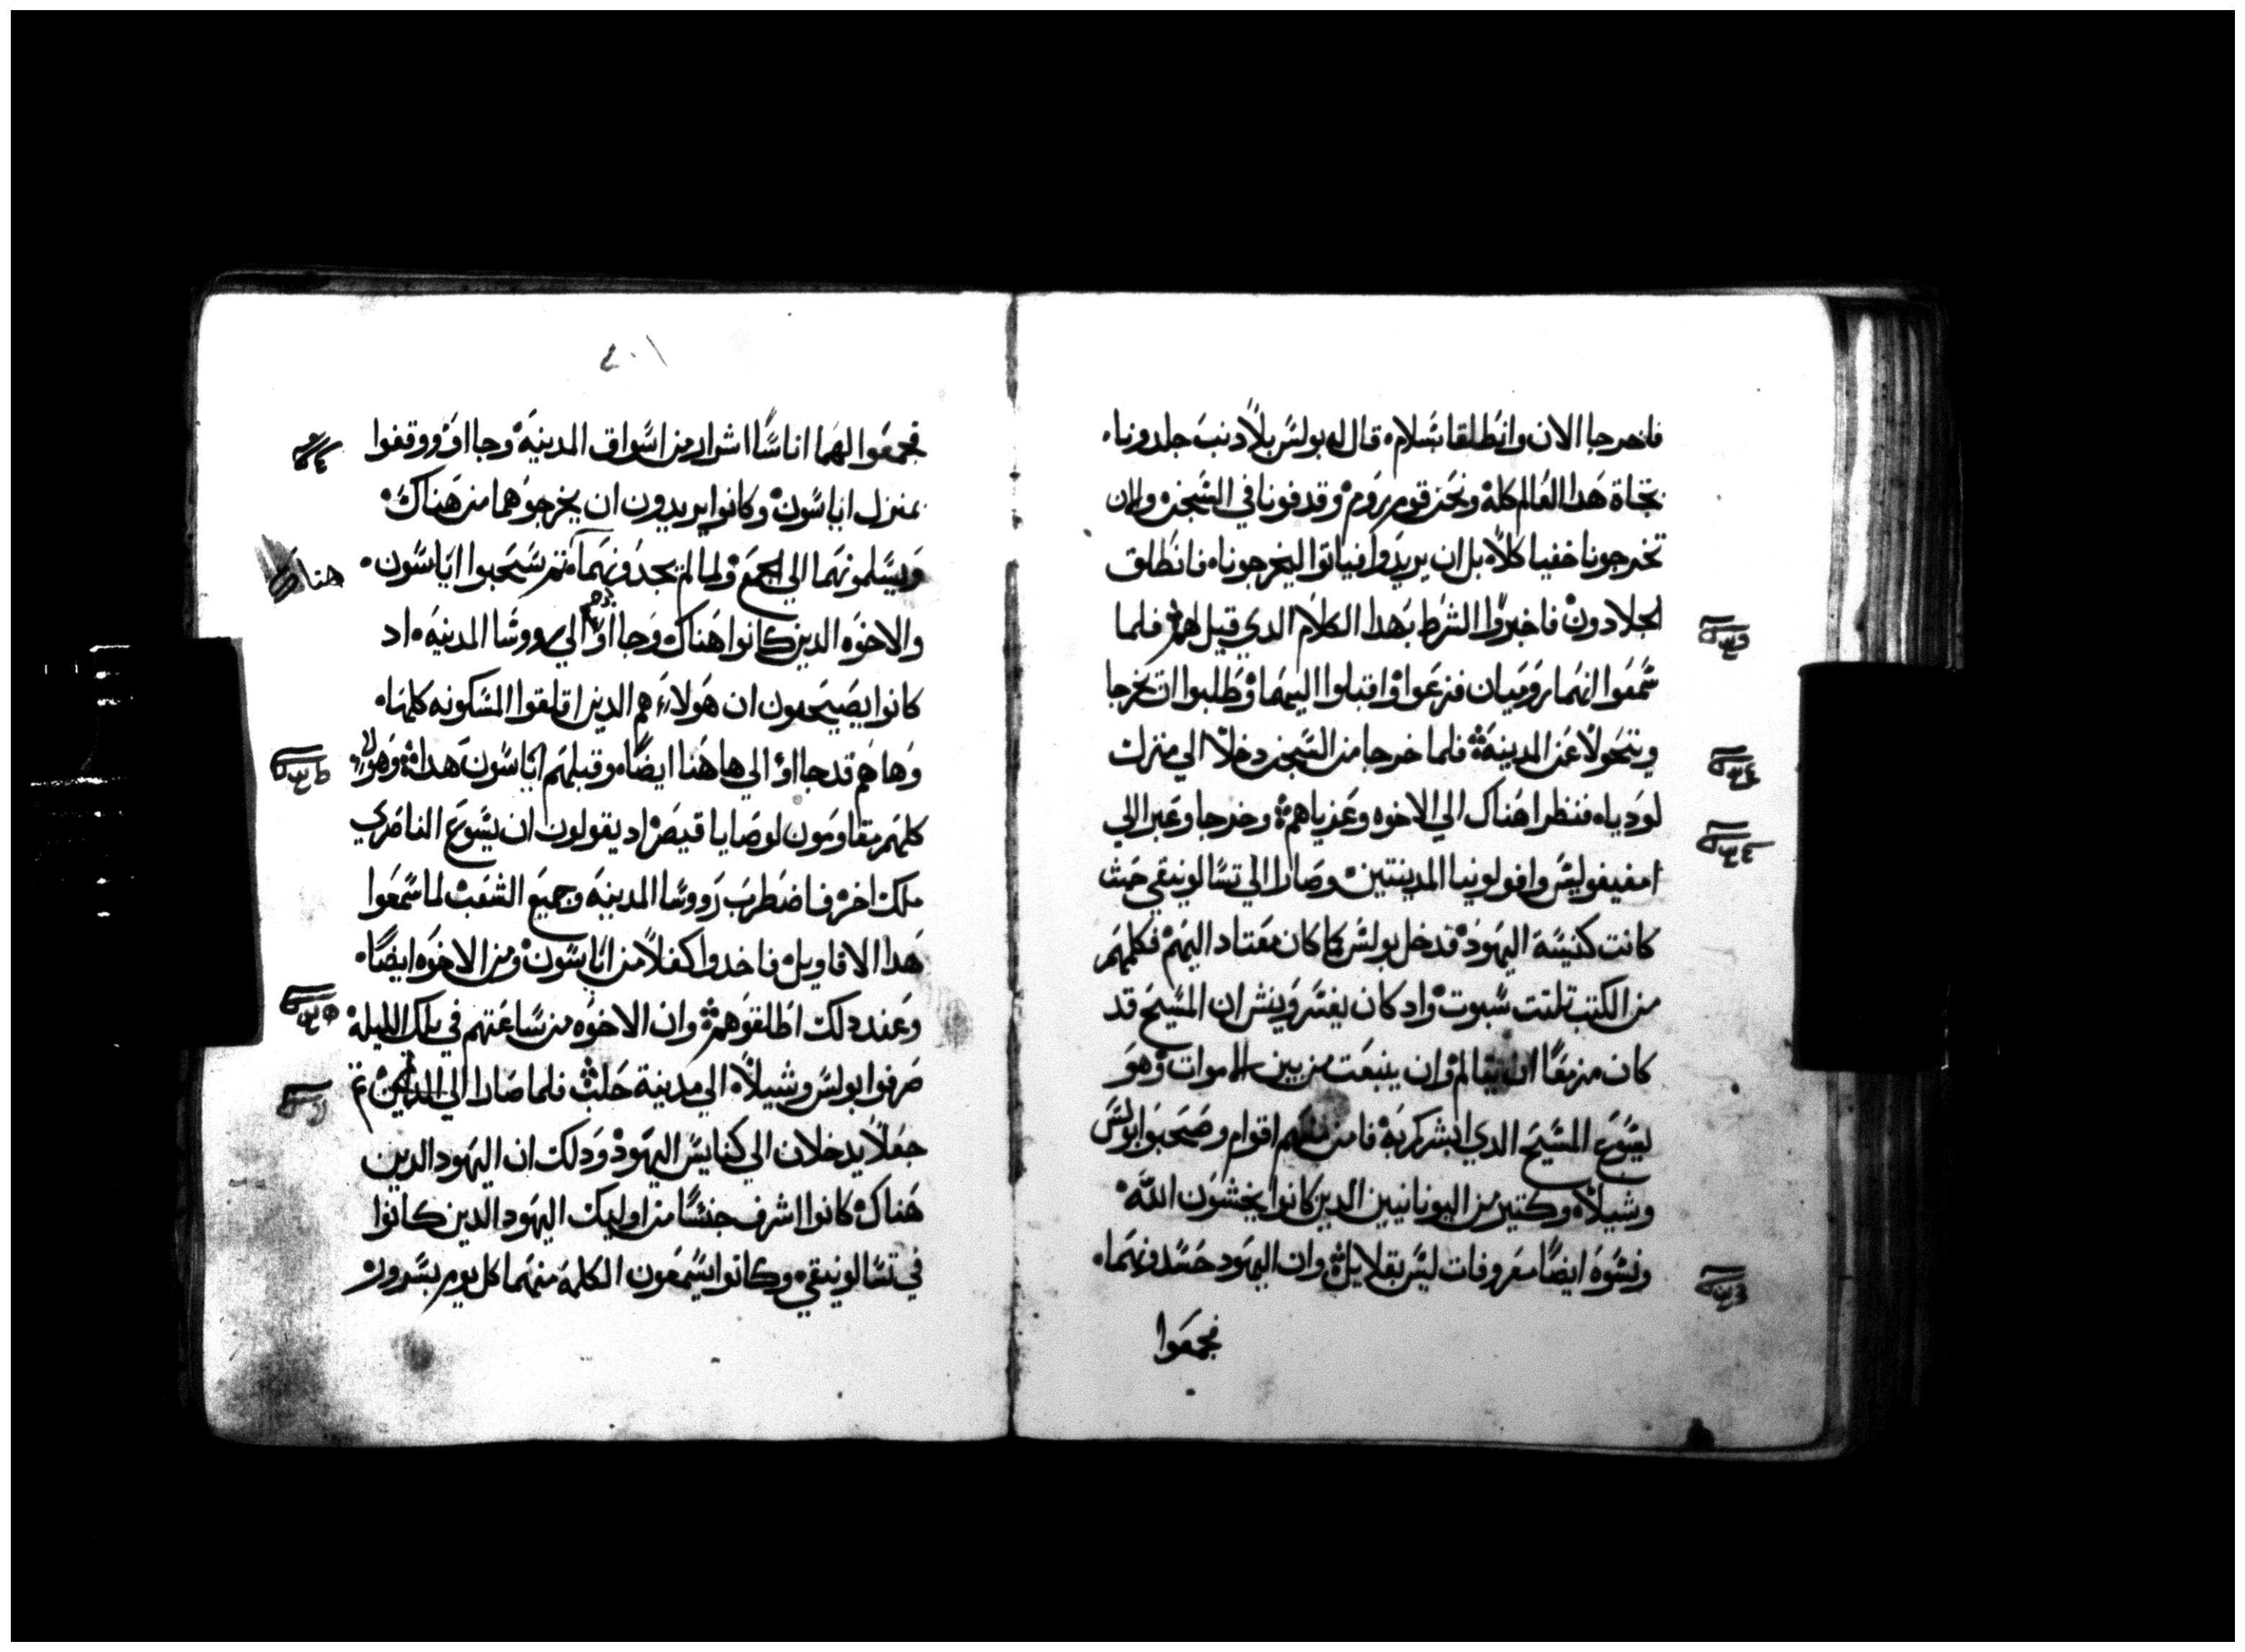 فاخرجا الان وانطلقا بسلام، قال له بولس بلا دنب جلدونا،
تجاة هدا العالم كله ونحن قوم روم وقدفونا في السجن والان
تخرجونا خفيا كلا، بل ان يريدوا فياتوا ليخرجونا، فانطلق
الجلادون فاخبروا الشرط بهدا الكلام الدي قيل لهم فلما
سمعوا انهما روميان فزعوا واقبلوا اليهما وطلبوا ان يخرجا
ويتحولا عن المدينة فلما خرجا من السجن دخلا الي منزل
لوديا، فنظرا هناك الي الاخوه وعزياهم وخرجا وعبرا الي
امفيفوليس وافولونيا المدينتين، وصارا الي تسالونيقي حيث
كانت كنيسة اليهود فدخل بولس كما كان معتاد اليهم فكلمهم
من الكتب تلتت سبوت واد كان يفسر وينشر ان المسيح قد
كان مزمعا ان يتالم وان ينبعت من بين الاموات وهو
يسوع المسيح الدي ابشركم به فامن منهم اقوام وصحبوا بولس
وشيلا، وكتير من اليونانيين الدين كانوا يخشون الله
ونسوه ايضا معروفات ليس بقلايل وان اليهود حسدونهما،
فجمعوا
٤٠١
فجمعوا لهما اناسا اشرار من اسواق المدينه وجااوا ووقفوا
بمنزل اياسون وكانوا يريدون ان يخرجوهما من هناك
ويسلمونهما الي الجمع ولما لم يجدونهما تم سحبوا اياسون،
هناك
والاخوه الدين كانوا هناك وجااوا بهم الي رووسا المدينه، اد
كانوا يصيحون ان هولاء هم الدين اقلقوا المسكونه كلها،
وها هم قد جااوا الي هاهنا ايضا، وقبلهم اياسون هدا، وهولاء
كلهم مقاومون لوصايا قيصر اد يقولون ان يسوع الناصري
ملك اخر فاضطرب رووسا المدينه وجميع الشعب لما سمعوا
هدا الاقاويل فاخدوا كفلا من اياسون ومن الاخوه ايضا،
وعند دلك اطلقوهم وان الاخوه من ساعتهم في تلك الليله
صرفوا بولس وشيلا، الي مدينة حلب فلما صارا الي تم
جعلا يدخلان الي كنايس اليهود ودلك ان اليهود الدين
هناك كانوا اشرف جنسا من اوليك اليهود الدين كانوا
في تسالونيقي، وكانوا يسمعون الكلمة منهما كل يوم بسرور